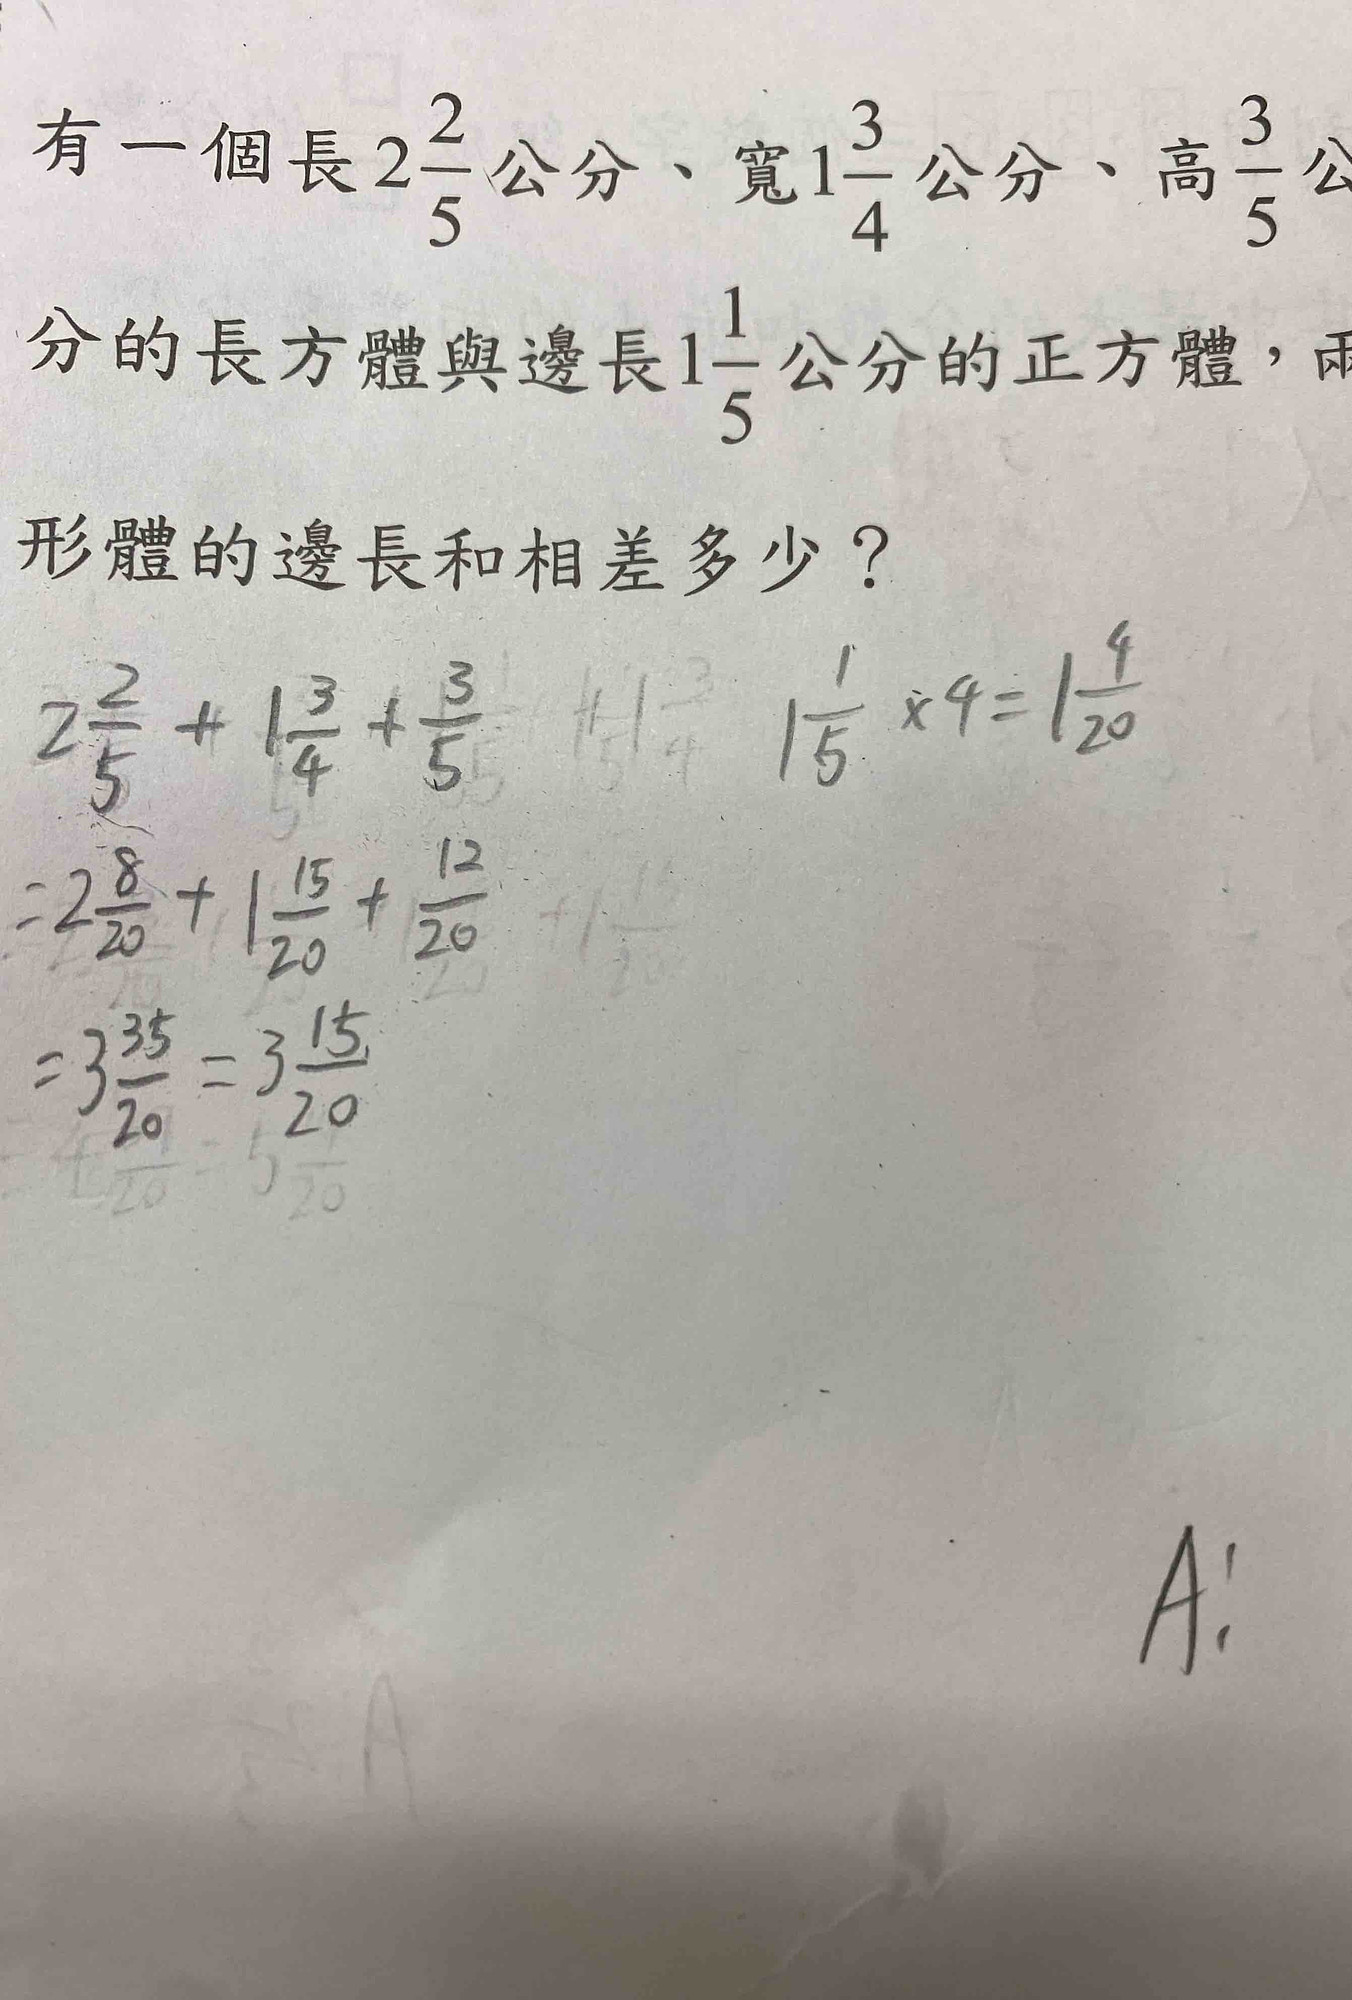 有一個長2 2/5公分、寬1 3/4公分、高3/5公
分的長方體與邊長1 1/5公分的正方體，兩
形體的邊長和相差多少？
2 2/5 + 1 3/4 + 3/5
1 1/5 × 4 = 1 4/20
= 2 8/20 + 1 15/20 + 12/20
= 3 35/20 = 3 15/20
A: